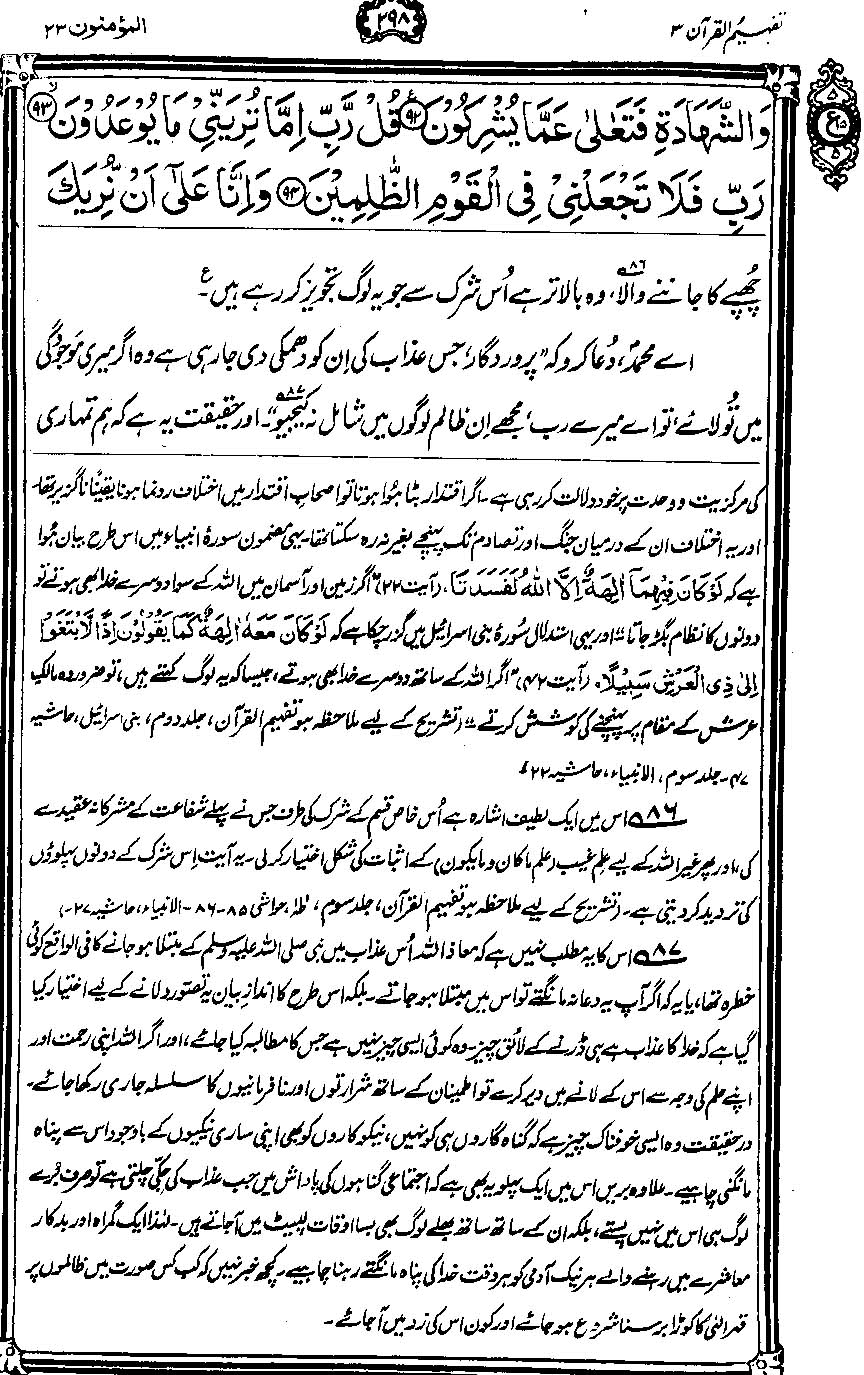 تفہیم القرآن ۳
۲۹۸
المؤمنون ۲۳
وَالشَّهَادَةِ فَتَعٰلٰى عَمَّا يُشْرِكُوْنَ ﴿۹۲﴾ قُلْ رَّبِّ اِمَّا تُرِيَنِّيْ مَا يُوْعَدُوْنَ ﴿۹۳﴾
رَبِّ فَلَا تَجْعَلْنِيْ فِى الْقَوْمِ الظّٰلِمِيْنَ ﴿۹۴﴾ وَاِنَّا عَلٰٓى اَنْ نُّرِيَكَ
چھُپے کا جاننے والا،۸۶ وہ بالاتر ہے اُس شرک سے جو یہ لوگ تجویز کر رہے ہیں۔ ع
اے محمدؐ، دُعا کرو کہ "پروردگار، جس عذاب کی اِن کو دھمکی دی جا رہی ہے وہ اگر میری موجودگی
میں تُو لائے، تو اے میرے رب، مجھے اِن ظالم لوگوں میں شامل نہ کیجیو"۔۸۷ اور حقیقت یہ ہے کہ ہم تمہاری
کی مرکزیت و وحدت پر خود دلالت کر رہی ہے۔ اگر اقتدار بٹا ہُوا ہوتا تو اصحابِ اقتدار میں اختلاف رونما ہونا یقیناً ناگزیر تھا۔
اور یہ اختلاف ان کے درمیان جنگ اور تصادم تک پہنچے بغیر نہ رہ سکتا تھا۔ یہی مضمون سورۂ انبیاء میں اس طرح بیان ہُوا
ہے کہ لَوْ كَانَ فِيْهِمَآ اٰلِهَةٌ اِلَّا اللّٰهُ لَفَسَدَتَا، (آیت ۲۲) "اگر زمین اور آسمان میں اللہ کے سوا دوسرے خدا بھی ہوتے تو
دونوں کا نظام بگڑ جاتا" اور یہی استدلال سُورۂ بنی اسرائیل میں گزر چکا ہے کہ لَوْ كَانَ مَعَهٗٓ اٰلِهَةٌ كَمَا يَقُوْلُوْنَ اِذًا لَّابْتَغَوْا
اِلٰى ذِى الْعَرْشِ سَبِيْلًا۔ (آیت ۴۲) "اگر اللہ کے ساتھ دوسرے خدا بھی ہوتے، جیسا کہ یہ لوگ کہتے ہیں، تو ضرور وہ مالکِ
عرش کے مقام پر پہنچنے کی کوشش کرتے"۔ (تشریح کے لیے ملاحظہ ہو تفہیم القرآن، جلد دوم، بنی اسرائیل، حاشیہ
۴۷۔ جلد سوم، الانبیاء، حاشیہ ۲۲)۔
۸۶ اس میں ایک لطیف اشارہ ہے اُس خاص قسم کے شرک کی طرف جس نے پہلے شفاعت کے مشرکانہ عقیدے
کی، اور پھر غیر اللہ کے لیے علم غیب (علم ماکان و مایکون) کے اثبات کی شکل اختیار کر لی۔ یہ آیت اِس شرک کے دونوں پہلوؤں
کی تردید کر دیتی ہے۔ (تشریح کے لیے ملاحظہ ہو تفہیم القرآن، جلد سوم، طٰہٰ، حواشی ۸۵-۸۶۔ الانبیاء، حاشیہ ۲۷۔)
۸۷ اس کا یہ مطلب نہیں ہے کہ معاذ اللہ اُس عذاب میں نبی صلی اللہ علیہ وسلم کے مبتلا ہو جانے کا فی الواقع کوئی
خطرہ تھا، یا یہ کہ اگر آپ یہ دعا نہ مانگتے تو اس میں مبتلا ہو جاتے۔ بلکہ اس طرح کا اندازِ بیان یہ تصور دلانے کے لیے اختیار کیا
گیا ہے کہ خدا کا عذاب ہے ہی ڈرنے کے لائق چیز۔ وہ کوئی ایسی چیز نہیں ہے جس کا مطالبہ کیا جائے، اور اگر اللہ اپنی رحمت اور
اپنے حلم کی وجہ سے اس کے لانے میں دیر کرے تو اطمینان کے ساتھ شرارتوں اور نافرمانیوں کا سلسلہ جاری رکھا جائے۔
درحقیقت وہ ایسی خوفناک چیز ہے کہ گناہ گاروں ہی کو نہیں، نیکوکاروں کو بھی اپنی ساری نیکیوں کے باوجود اس سے پناہ
مانگنی چاہیے۔ علاوہ بریں اس میں ایک پہلو یہ بھی ہے کہ اجتماعی گناہوں کی پاداش میں جب عذاب کی چکی چلتی ہے تو صرف بُرے
لوگ ہی اس میں نہیں پِستے، بلکہ ان کے ساتھ ساتھ بھلے لوگ بھی بسا اوقات لپیٹ میں آ جاتے ہیں۔ لہٰذا ایک گمراہ اور بدکار
معاشرے میں رہنے والے ہر نیک آدمی کو ہر وقت خدا کی پناہ مانگتے رہنا چاہیے۔ کچھ خبر نہیں کہ کب کس صورت میں ظالموں پر
قہرِ الٰہی کا کوڑا برسنا شروع ہو جائے اور کون اس کی زد میں آ جائے۔